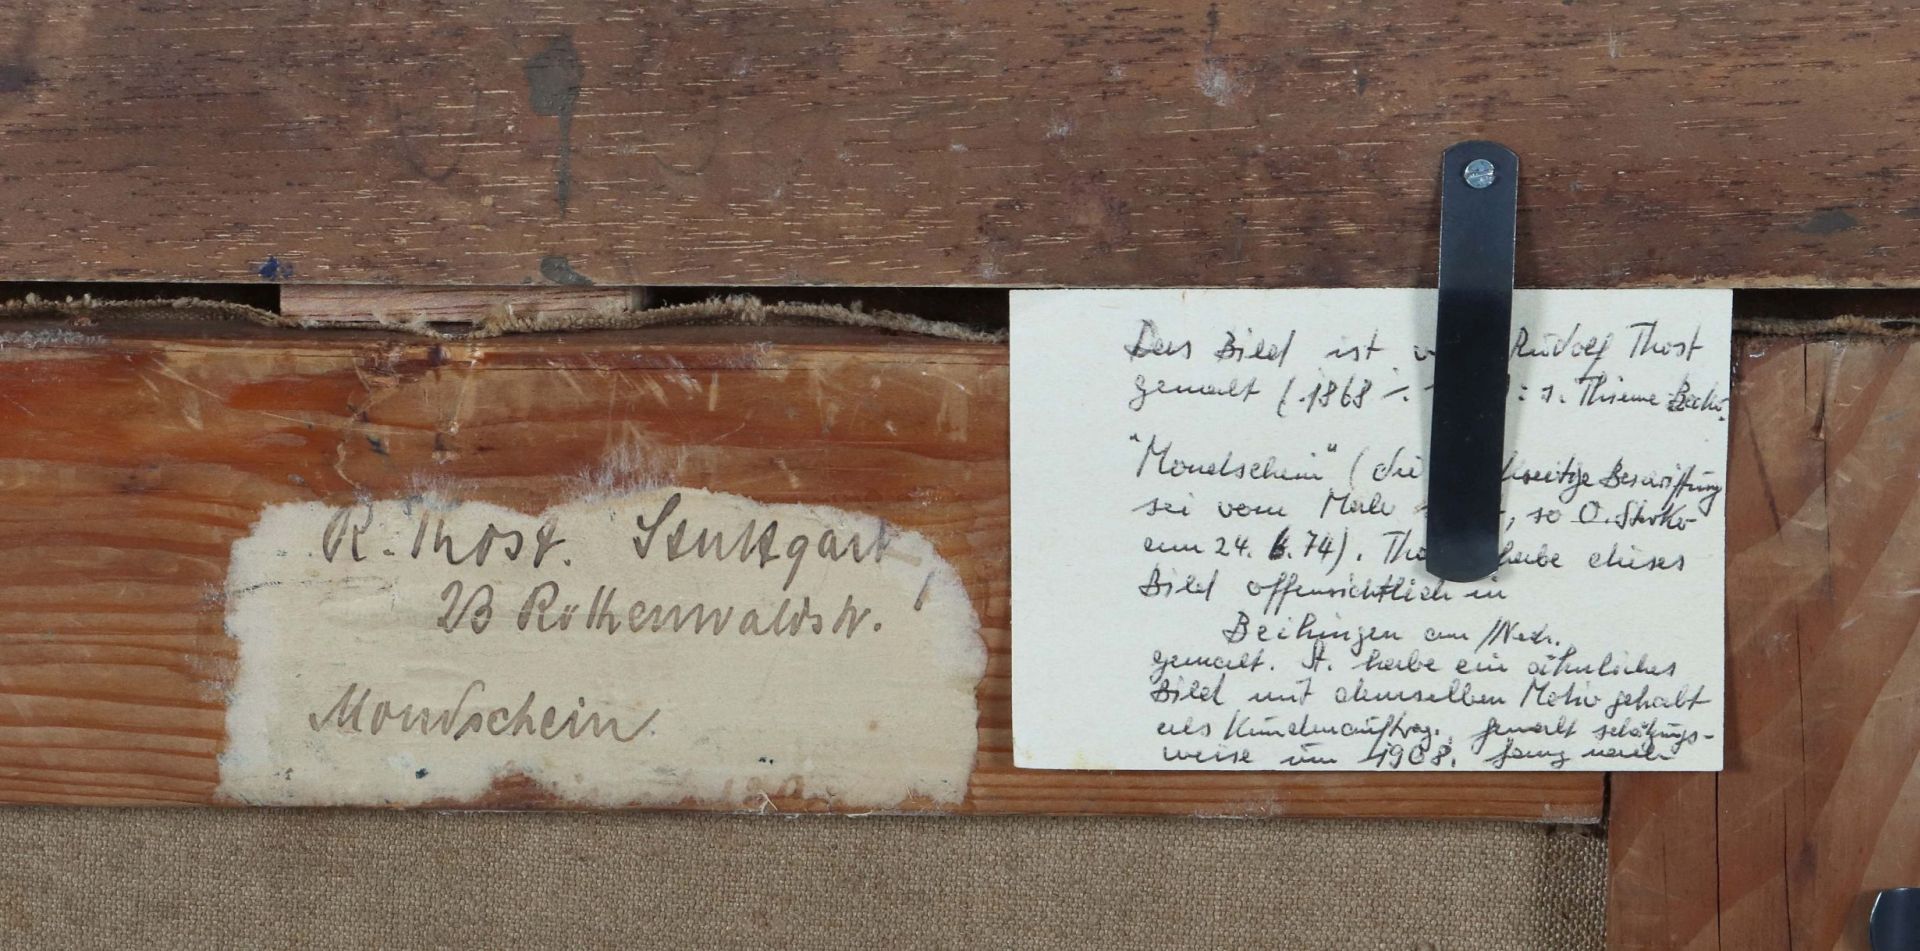 R. Thost. Stuttgart,
23 Rothenwaldstr.
Mondschein.
Das Bild ist Rudolf Thost
gemalt (1868 : s. Thieme-Becker
"Mondschein" (die Beschriftung
sei vom Maler , so O.
am 24. 6. 74). Tho habe dieses
Bild offensichtlich in
Beihingen am /Neck.
gemalt. St. habe ein ähnliches
Bild mit demselben Motiv gehabt
als Kundenauftrag. gemalt schätzungs-
weise um 1908.